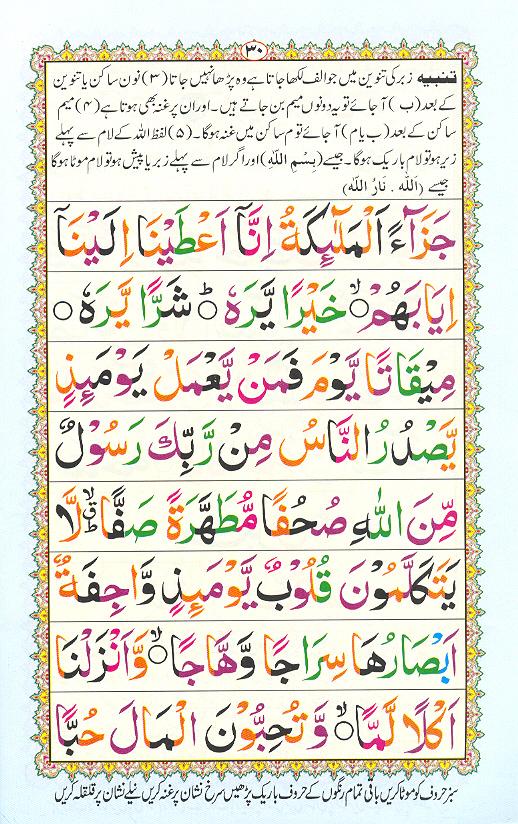 ۳۰
تنبیہ زبر کی تنوین میں جو الف لکھا جاتا ہے وہ پڑھا نہیں جاتا (۳) نون ساکن یا تنوین
کے بعد (ب) آ جائے تو یہ دونوں میم بن جاتے ہیں۔ اور ان پر غنہ بھی ہوتا ہے (۴) میم
ساکن کے بعد (ب یا م) آ جائے تو م ساکن میں غنہ ہوگا۔ (۵) لفظ اللہ کے لام سے پہلے
زیر ہو تو لام باریک ہوگا۔ جیسے (بِسْمِ اللّٰهِ) اور اگر لام سے پہلے زبر یا پیش ہو تو لام موٹا ہوگا
جیسے (اَللّٰهُ ۔ نَارُ اللّٰهِ)
جَزَآءً اَلْمَلٰٓئِكَةُ اِنَّآ اَعْطَيْنَا اِلَيْنَآ
اِيَابَهُمْ ۙ○ خَيْرًا يَّرَهٗ ○ؕ شَرًّا يَّرَهٗ ○
مِيْقَاتًا يَّوْمَ فَمَنْ يَّعْمَلْ يَوْمَئِذٍ
يَّصْدُرُ النَّاسُ مِنْ رَّبِّكَ رَسُوْلٌ
مِّنَ اللّٰهِ صُحُفًا مُّطَهَّرَةً صَفًّا لَّا
يَتَكَلَّمُوْنَ قُلُوْبٌ يَّوْمَئِذٍ وَّاجِفَةٌ
اَبْصَارُهَا سِرَاجًا وَّهَّاجًا ۙ○ وَّاَنْزَلْنَا
اَكْلًا لَّمًّا ۙ○ وَّتُحِبُّوْنَ الْمَالَ حُبًّا
سبز حروف کو موٹا کریں باقی تمام رنگوں کے حروف باریک پڑھیں سرخ نشان پر غنہ کریں نیلے نشان پر قلقلہ کریں